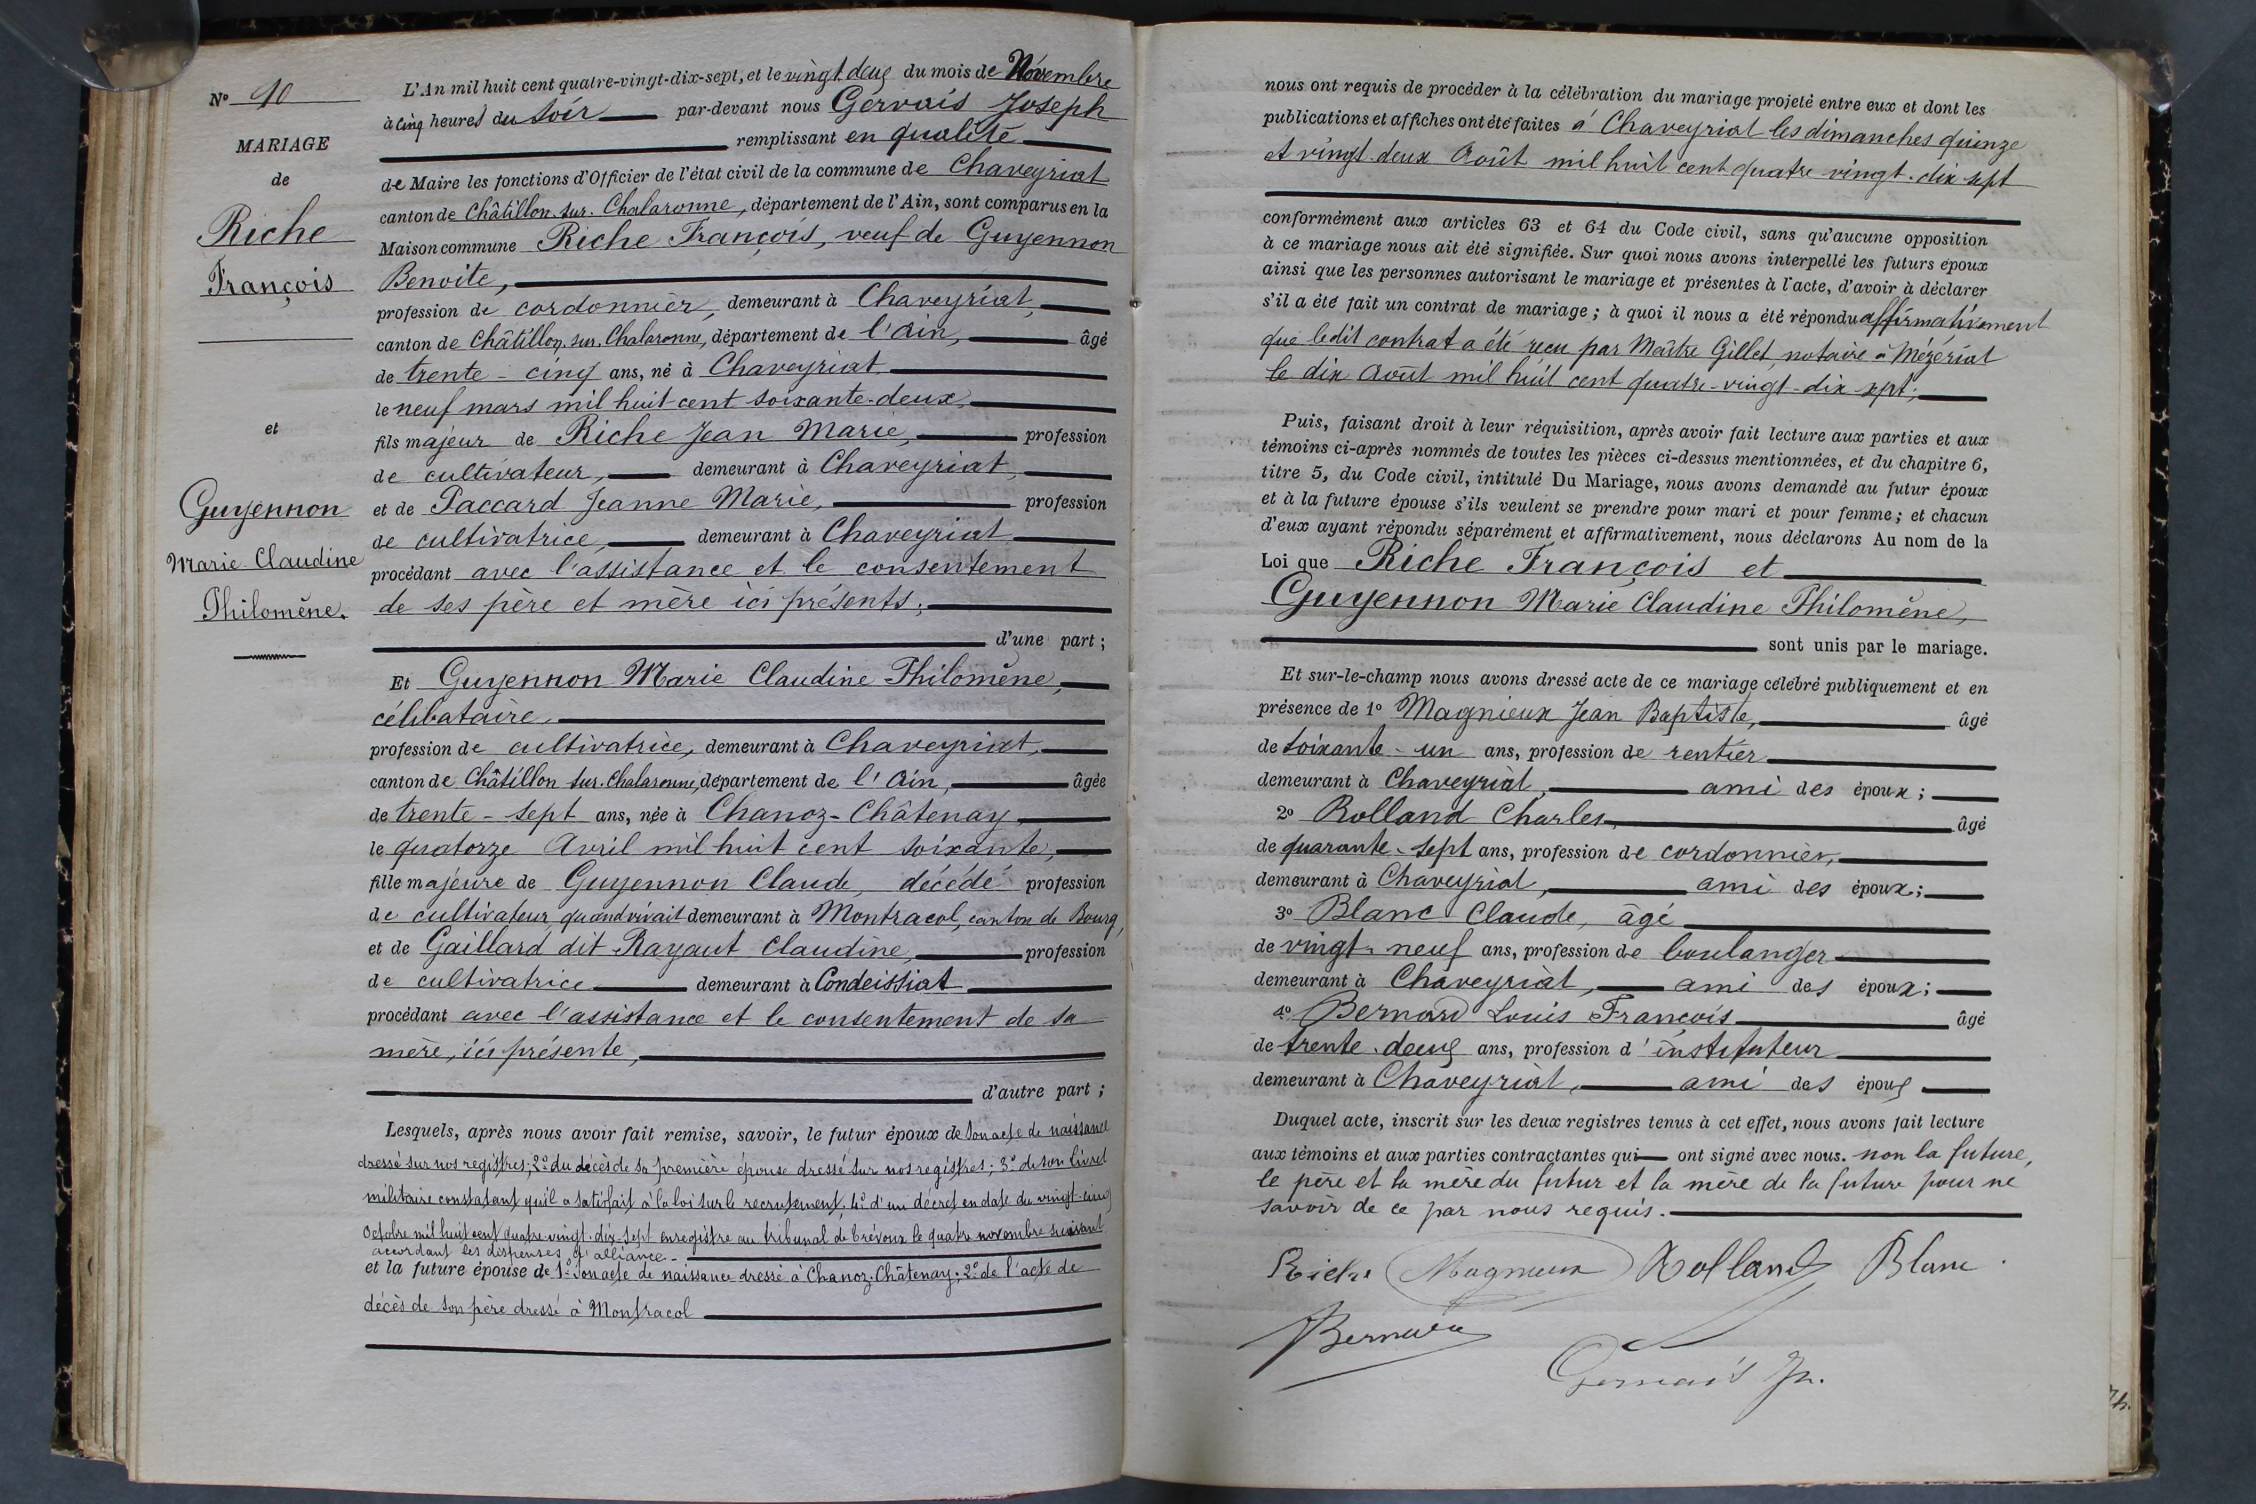 N° 10
MARIAGE
de
Riche
François
et
Guyennon
Marie Claudine
Philomène.
L'An mil huit cent quatre-vingt-dix-sept, et le vingt deux du mois de Novembre
à cinq heures du soir par-devant nous Gervais Joseph
remplissant en qualité
de Maire les fonctions d'Officier de l'état civil de la commune de Chaveyriat
canton de Châtillon-sur-Chalaronne, département de l'Ain, sont comparus en la
Maison commune Riche François, veuf de Guyennon
Benoite,
profession de cordonnier, demeurant à Chaveyriat,
canton de Châtillon-sur-Chalaronne, département de l'Ain, âgé
de trente-cinq ans, né à Chaveyriat
le neuf mars mil huit cent soixante-deux,
fils majeur de Riche Jean Marie, profession
de cultivateur, demeurant à Chaveyriat,
et de Paccard Jeanne Marie, profession
de cultivatrice, demeurant à Chaveyriat
procédant avec l'assistance et le consentement
de ses père et mère ici présents;
d'une part;
Et Guyennon Marie Claudine Philomène,
célibataire,
profession de cultivatrice, demeurant à Chaveyriat,
canton de Châtillon sur-Chalaronne, département de l'Ain, âgée
de trente-sept ans, née à Chanoz-Châtenay,
le quatorze Avril mil huit cent soixante,
fille majeure de Guyennon Claude, décédé profession
de cultivateur, quand vivait demeurant à Montracol, canton de Bourg,
et de Gaillard dit Rayaut Claudine, profession
de cultivatrice demeurant à Condeissiat
procédant avec l'assistance et le consentement de sa
mère, ici présente,
d'autre part;
Lesquels, après nous avoir fait remise, savoir, le futur époux de son acte de naissance
dressé sur nos registres; 2° du décès de sa première épouse dressé sur nos registres; 3° de son livret
militaire constatant qu'il a satisfait à la loi sur le recrutement, 4° d'un décret en date du vingt-cinq
Octobre mil huit cent quatre-vingt-dix-sept enregistré au tribunal de Trévoux le quatre novembre suivant
accordant les dispenses d'alliance.
et la future épouse de 1° son acte de naissance dressé à Chanoz-Châtenay; 2° de l'acte de
décès de son père dressé à Montracol
nous ont requis de procéder à la célébration du mariage projeté entre eux et dont les
publications et affiches ont été faites à Chaveyriat les dimanches quinze
et vingt-deux Août mil huit cent quatre-vingt-dix sept
conformément aux articles 63 et 64 du Code civil, sans qu'aucune opposition
à ce mariage nous ait été signifiée. Sur quoi nous avons interpellé les futurs époux
ainsi que les personnes autorisant le mariage et présentes à l'acte, d'avoir à déclarer
s'il a été fait un contrat de mariage; à quoi il nous a été répondu affirmativement
que ledit contrat a été reçu par Maître Gillet, notaire à Mézériat
le dix Août mil huit cent quatre-vingt-dix sept;
Puis, faisant droit à leur réquisition, après avoir fait lecture aux parties et aux
témoins ci-après nommés de toutes les pièces ci-dessus mentionnées, et du chapitre 6,
titre 5, du Code civil, intitulé Du Mariage, nous avons demandé au futur époux
et à la future épouse s'ils veulent se prendre pour mari et pour femme; et chacun
d'eux ayant répondu séparément et affirmativement, nous déclarons Au nom de la
Loi que Riche François et
Guyennon Marie Claudine Philomène,
sont unis par le mariage.
Et sur-le-champ nous avons dressé acte de ce mariage célébré publiquement et en
présence de 1° Magnieux Jean Baptiste, âgé
de soixante-un ans, profession de rentier
demeurant à Chaveyriat, ami des époux;
2° Rolland Charles, âgé
de quarante-sept ans, profession de cordonnier,
demeurant à Chaveyriat, ami des époux;
3° Blanc Claude, âgé
de vingt-neuf ans, profession de boulanger
demeurant à Chaveyriat, ami des époux;
4° Bernard Louis François âgé
de trente-deux ans, profession d'instituteur
demeurant à Chaveyriat, ami des époux
Duquel acte, inscrit sur les deux registres tenus à cet effet, nous avons fait lecture
aux témoins et aux parties contractantes qui ont signé avec nous. non la future,
le père et la mère du futur et la mère de la future pour ne
savoir de ce par nous requis.
Riche Magnieux Rolland Blanc
Bernard
Gervais Jh.